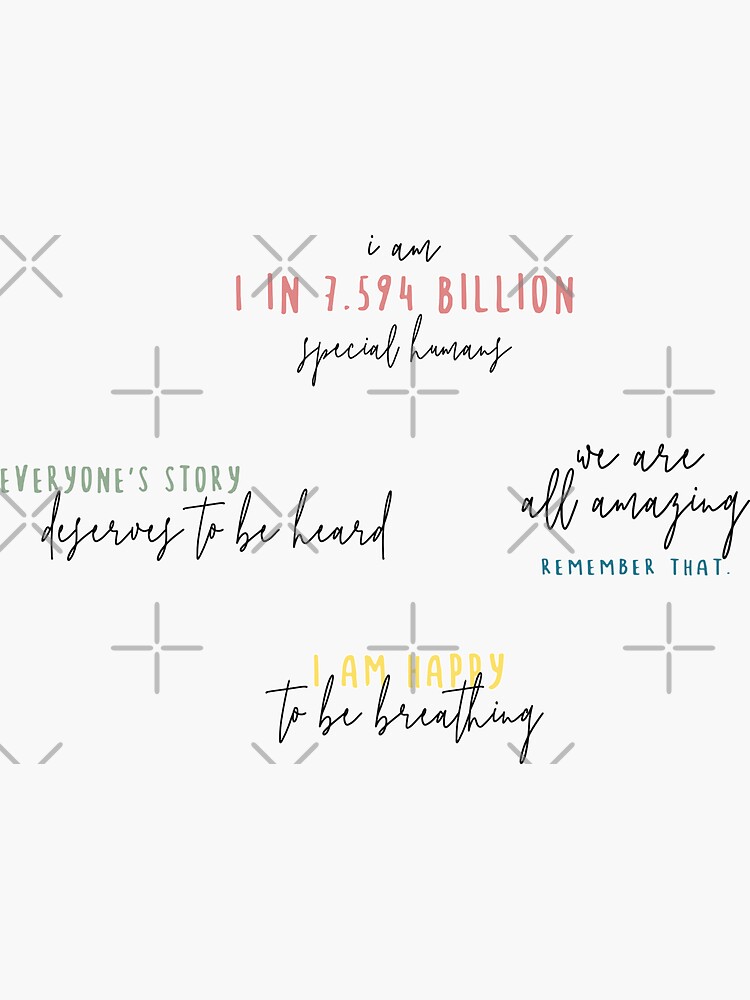 i am
1 IN 7.594 BILLION
special humans
EVERYONE'S STORY
deserves to be heard
we are
all amazing
REMEMBER THAT.
I AM HAPPY
to be breathing